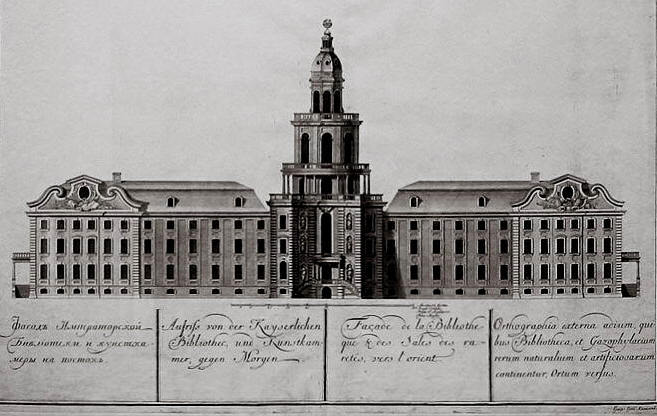 Фасадъ Императорской
Библіотеки и кунстка-
меры на востокъ.
Aufriss von der Kayserlichen
Bibliothec, und Kunstkam-
mer, gegen Morgen
Façade de la Bibliothe-
que & des Sales des ra-
retés, vers l'orient
Orthographia externa aedium, qui-
bus Bibliotheca, et Gazophylacium
rerum naturalium et artificiosarum
continentur, Ortum versus.